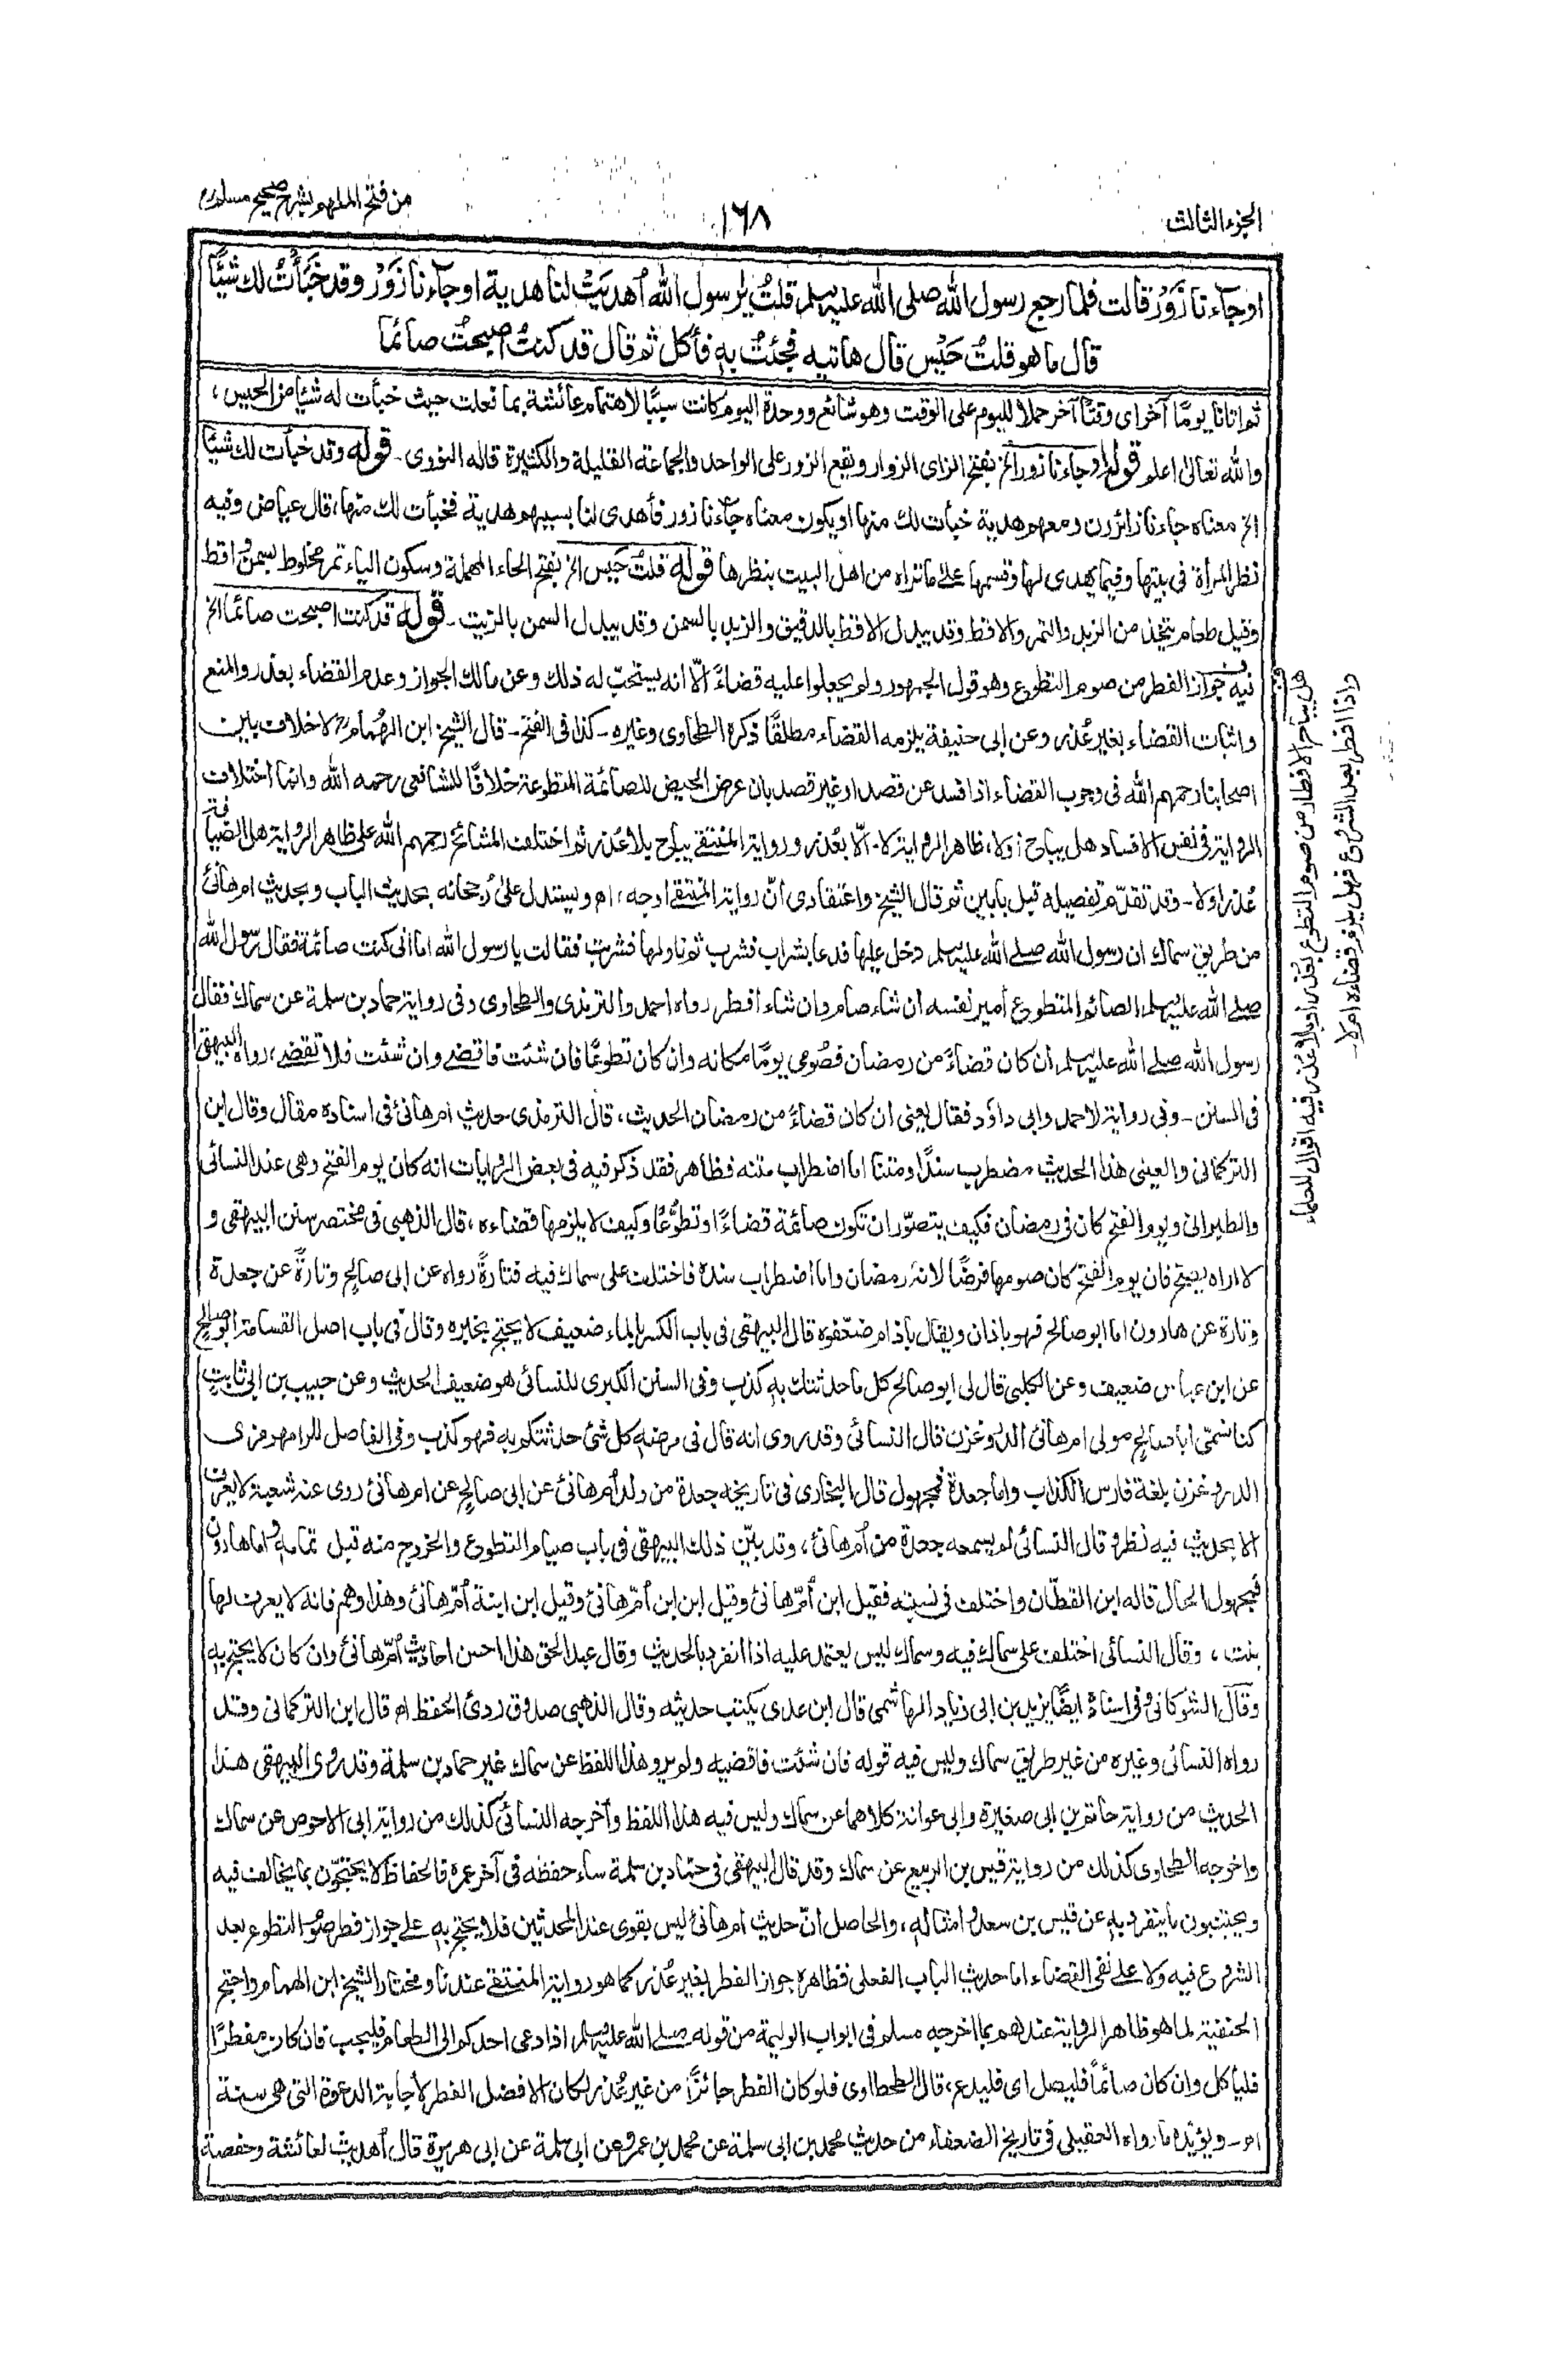 الجزء الثالث
١٦٨
من فتح الملهم بشرح صحيح مسلم
او جاءنا زَوْرٌ قالت فلما رجع رسول الله صلى الله عليه وسلم قلتُ يا رسول الله أُهدِيَتْ لنا هدية او جاءنا زَوْرٌ وقد خَبَأْتُ لك شيئًا
قال ما هو قلتُ حَيْس قال هاتيه فجئتُ به فأكل ثم قال قد كنتُ اصبحتُ صائما
ثم اتانا يومًا آخر اى وقتًا آخر حملا لليوم على الوقت وهو شائع ووحدة اليوم كانت سببًا لاهتمام عائشة بما فعلت حيث خبأت له شيئا من الحيس،
والله تعالى اعلم قوله او جاءنا زور الخ بفتح الزاى الزوار ويقع الزور على الواحد والجماعة القليلة والكثيرة قاله النووى۔ قوله وقد خبأت لك شيئًا
الخ معناه جاءنا زائرون ومعهم هدية خبأت لك منها او يكون معناه جاءنا زور فأهدى لنا بسببهم هدية فخبأت لك منها، قال عياض وفيه
نظر المرأة فى بيتها وفيما يهدى لها وقسمها على ما تراه من اهل البيت بنظرها قوله قلت حيس الخ بفتح الحاء المهملة وسكون الياء تمر مخلوط بسمن واقط
وقيل طعام يتخذ من الزبد والتمر والاقط وقد يبدل الاقط بالدقيق والزبد بالسمن وقد يبدل السمن بالزيت۔ قوله قد كنت اصبحت صائما الخ
فيه جواز الفطر من صوم التطوع وهو قول الجمهور ولم يجعلوا عليه قضاءً الّا انه يستحبّ له ذلك وعن مالك الجواز وعدم القضاء بعذر والمنع
واثبات القضاء بغير عُذر وعن ابى حنيفة يلزمه القضاء مطلقًا ذكره الطحاوى وغيره۔ كذا فى الفتح۔ قال الشيخ ابن الهُمام رح لا خلاف بين
اصحابنا رحمهم الله فى وجوب القضاء اذا فسد عن قصد او غير قصد بان عرض الحيض للصائمة المتطوعة خلافًا للشافعى رحمه الله وانما اختلاف
الرواية فى نفس الافساد هل يباح او لا، ظاهر الرواية لا۔ الّا بعُذر ورواية المنتقى يباح بلا عُذر ثم اختلف المشائخ رحمهم الله على ظاهر الرواية هل الضيافة
عُذر او لا۔ وقد تقدّم تفصيله قبل بابين ثم قال الشيخ واعتقادى انّ رواية المنتقى اوجه، اه ويستدل على رُجحانه بحديث الباب وبحديث ام هانئ
من طريق سماك ان رسول الله صلى الله عليه وسلم دخل عليها فدعا بشراب فشرب ثم ناولها فشربت فقالت يا رسول الله اما انى كنت صائمة فقال رسول الله
صلى الله عليه وسلم الصائم المتطوع أمير نفسه ان شاء صام وان شاء افطر رواه احمد والترمذى والطحاوى وفى رواية حماد بن سلمة عن سماك فقال
رسول الله صلى الله عليه وسلم ان كان قضاءً من رمضان فصُومى يومًا مكانه وان كان تطوعًا فان شئت فاقضى وان شئت فلا تقضى، رواه البيهقى
فى السنن۔ وفى رواية لاحمد وابى داؤد فقال يعنى ان كان قضاءً من رمضان الحديث، قال الترمذى حديث ام هانئ فى اسناده مقال وقال ابن
التركمانى والعينى هذا الحديث مضطرب سندًا ومتنا اما اضطراب متنه فظاهر فقد ذكر فيه فى بعض الروايات انه كان يوم الفتح وهى عند النسائى
والطبرانى ويوم الفتح كان فى رمضان فكيف يتصوّر ان تكون صائمة قضاءً او تطوُّعًا وكيف لا يلزمها قضاءه، قال الذهبى فى مختصر سنن البيهقى و
لا اراه يصح فان يوم الفتح كان صومها فرضًا لانه رمضان واما اضطراب سنده فاختلف على سماك فيه فتارةً رواه عن ابى صالح وتارةً عن جعدة
وتارة عن هارون اما ابو صالح فهو باذان ويقال باذام ضعّفوه قال البيهقى فى باب الكسر بالماء ضعيف لا يحتج بخبره وقال فى باب اصل القسامة ابو صالح
عن ابن عباس ضعيف وعن الكلبى قال لى ابو صالح كل ما حدثتك به كذب وفى السنن الكبرى للنسائى هو ضعيف الحديث وعن حبيب بن ابى ثابت
كنا نسمّى ابا صالح مولى ام هانئ الدروغزن قال النسائى وقد روى انه قال فى مرضه كل شئ حدثتكم به فهو كذب وفى الفاصل للرامهرمزى
الدروغزن بلغة فارس الكذاب واما جعدة فمجهول قال البخارى فى تاريخه جعدة من ولد ام هانئ عن ابى صالح عن ام هانئ روى عنه شعبة لا يعرف
الا بحديث فيه نظر وقال النسائى لم يسمعه جعدة من أم هانئ، وقد بيّن ذلك البيهقى فى باب صيام التطوع والخروج منه قبل تمامه واما هارون
فمجهول الحال قاله ابن القطّان واختلف فى نسبته فقيل ابن أمّ هانئ وقيل ابن ابن أمّ هانئ وقيل ابن ابنة أمّ هانئ وهذا وهم فانه لا يعرف لها
بنت، وقال النسائى اختلف على سماك فيه وسماك ليس يعتمد عليه اذا انفرد بالحديث وقال عبد الحق هذا احسن احاديث أمّ هانئ وان كان لا يحتج به
وقال الشوكانى وفى اسناده ايضًا يزيد بن ابى زياد الهاشمى قال ابن عدى يكتب حديثه وقال الذهبى صدوق ردئ الحفظ اه قال ابن التركمانى وقد
رواه النسائى وغيره من غير طريق سماك وليس فيه قوله فان شئت فاقضيه ولم يرو هذا اللفظ عن سماك غير حماد بن سلمة وقد روى البيهقى هذا
الحديث من رواية حاتم بن ابى صغيرة وابى عوانة كلاهما عن سماك وليس فيه هذا اللفظ وأخرجه النسائى كذلك من رواية ابى الاحوص عن سماك
واخرجه الطحاوى كذلك من رواية قيس بن الربيع عن سماك وقد قال البيهقى فى حماد بن سلمة ساء حفظه فى آخر عمره فالحفاظ لا يحتجّون بما يخالف فيه
ويجتنبون ما ينفرد به عن قيس بن سعد وامثاله، والحاصل انّ حديث ام هانئ ليس بقوى عند المحدثين فلا يحتج به على جواز فطر صوم التطوع بعد
الشروع فيه ولا على نفى القضاء اما حديث الباب الفعلى فظاهره جواز الفطر بغير عُذر كما هو رواية المنتقى عندنا ومختار الشيخ ابن الهمام واحتج
الحنفية لما هو ظاهر الرواية عندهم بما اخرجه مسلم فى ابواب الوليمة من قوله صلى الله عليه وسلم اذا دعى احدكم الى الطعام فليجب فان كان مفطرًا
فليأكل وان كان صائماً فليصل اى فليدع، قال الطحطاوى فلو كان الفطر جائزًا من غير عُذر لكان الافضل الفطر لاجابة الدعوة التى هى سنة
اه۔ ويؤيده ما رواه العقيلى فى تاريخ الضعفاء من حديث محمد بن ابى سلمة عن محمد بن عمرو عن ابى سلمة عن ابى هريرة قال أهديت لعائشة وحفصة
هل يباح الافطار من صوم التطوع بعذر او بلا عذر فيه اقوال للعلماء
واذا افطر بعد الشروع فهل يلزم قضاءه ام لا۔